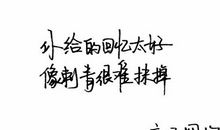 你给的回忆太好
像刺青很难抹掉